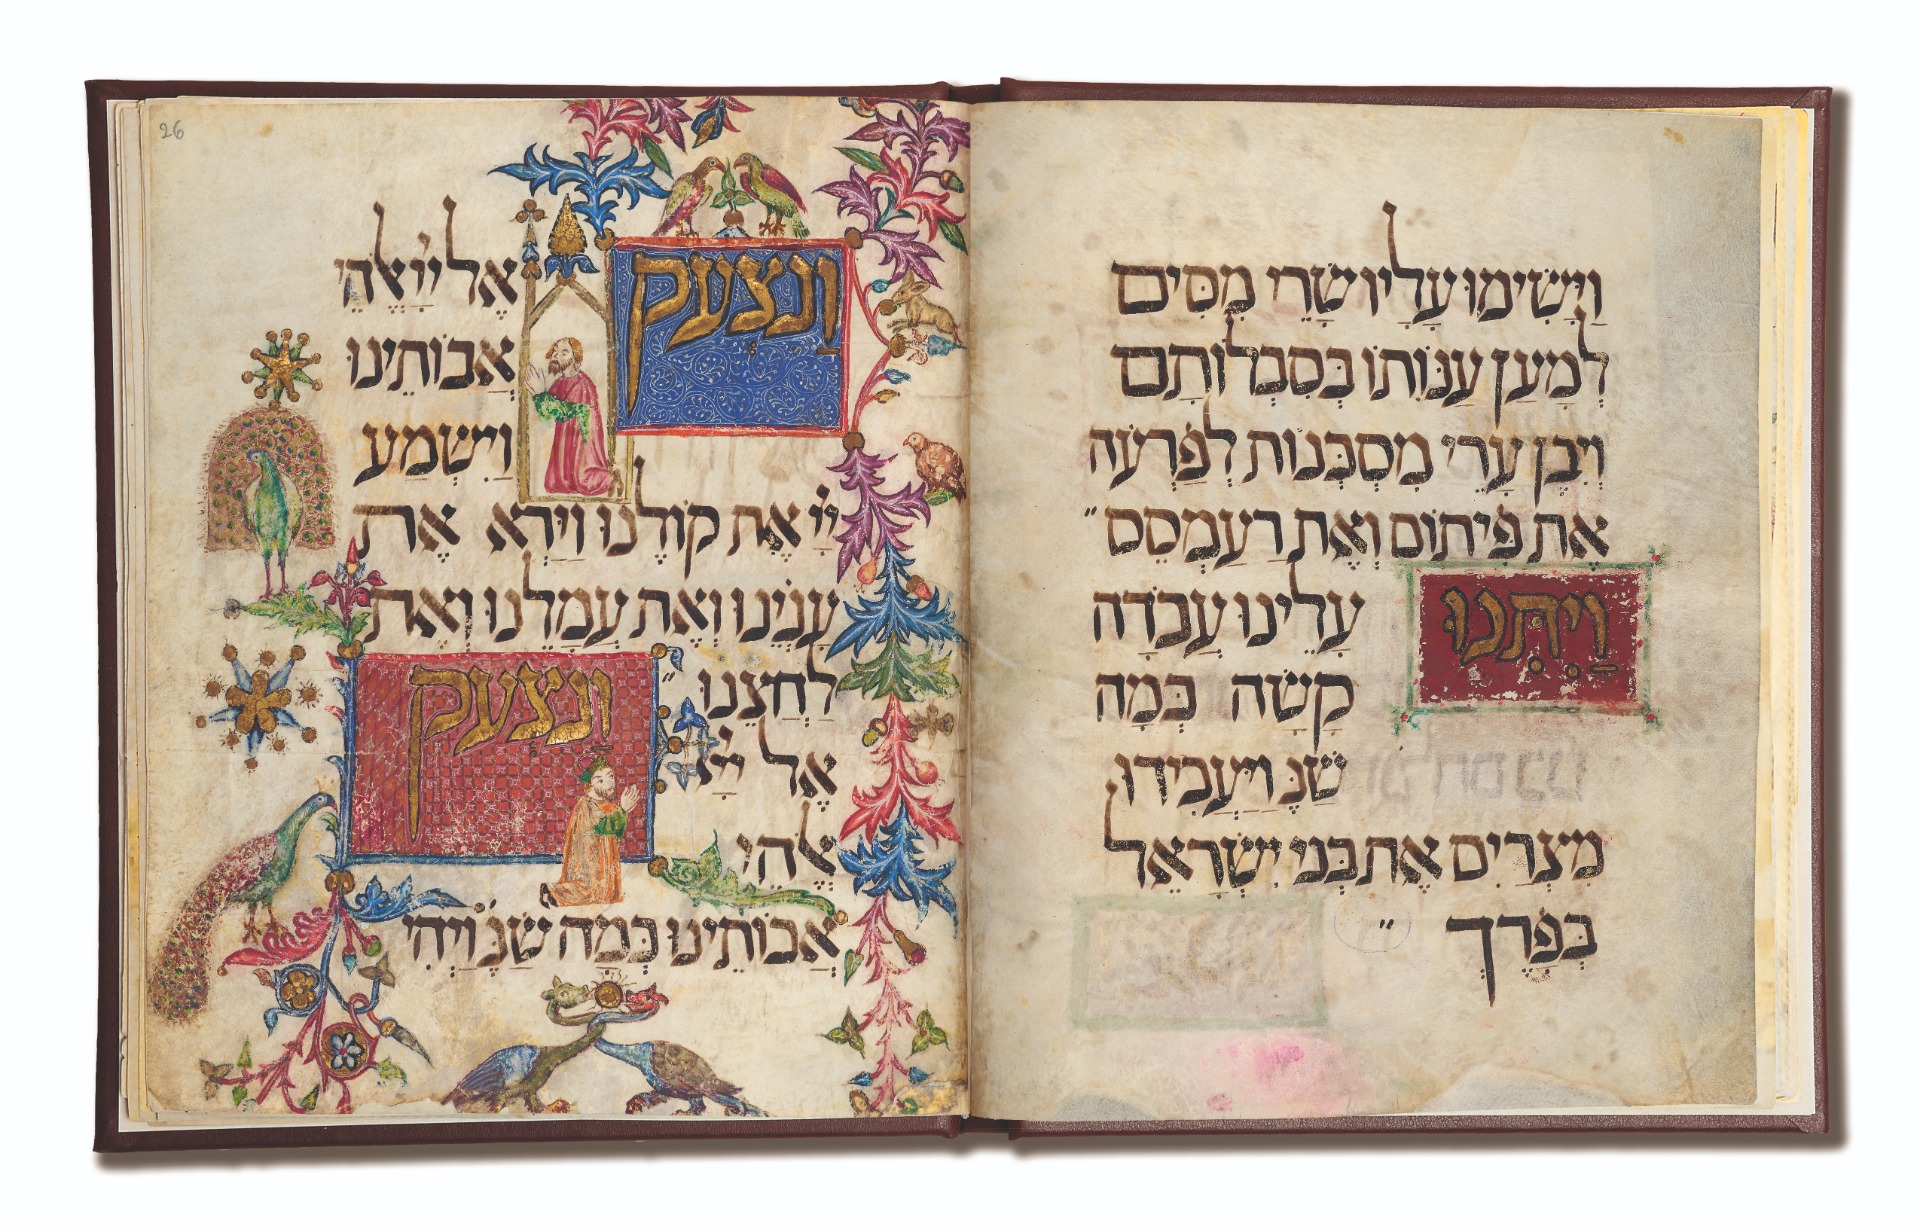 וַיָּשִׂימוּ עָלָיו שָׂרֵי מִסִּים
לְמַעַן עַנּוֹתוֹ בְּסִבְלוֹתָם
וַיִּבֶן עָרֵי מִסְכְּנוֹת לְפַרְעֹה
אֶת פִּיתוֹם וְאֶת רַעַמְסֵס ״
וַיִּתְּנוּ עָלֵינוּ עֲבֹדָה
קָשָׁה כְּמָה
שֶׁנֶּ וַיַּעֲבִידוּ
מִצְרַיִם אֶת בְּנֵי יִשְׂרָאֵל
בְּפָרֶךְ ״
26
וַנִּצְעַק אֶל יְיָ אֱלֹהֵי
אֲבוֹתֵינוּ
וַיִּשְׁמַע
יְיָ אֶת קוֹלֵנוּ וַיַּרְא אֶת
עָנְיֵנוּ וְאֶת עֲמָלֵנוּ וְאֶת
לַחֲצֵנוּ ״ וַנִּצְעַק
אֶל יְיָ
אֱלֹהֵי
אֲבוֹתֵינוּ כְּמָה שֶׁנֶּ וַיְהִי